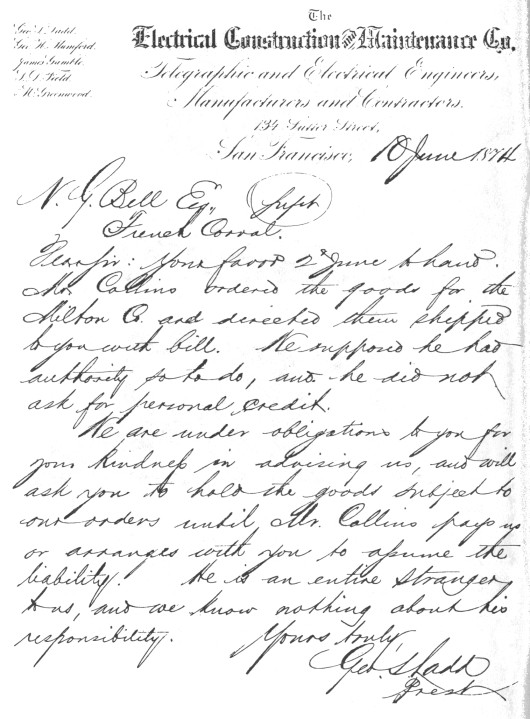 Geo. S. Ladd.
Geo. W. Mumford.
James Gamble.
S. D. Field.
M. Greenwood.
The
Electrical Construction and Maintenance Co.
Telegraphic and Electrical Engineers,
Manufacturers and Contractors.
134 Sutter Street,
San Francisco, 10 June 1874
N. G. Bell Esq, Supt
French Corral.
Dear Sir: Your favor 2d June to hand.
Mr Collins ordered the goods for the
Milton Co. and directed them shipped
to you with bill. We supposed he had
authority so to do, and he did not
ask for personal credit.
We are under obligations to you for
your kindness in advising us, and will
ask you to hold the goods subject to
our orders until, Mr. Collins pays us
or arranges with you to assume the
liability. He is an entire stranger
to us, and we know nothing about his
responsibility. Yours truly,
Geo. S. Ladd
Prest